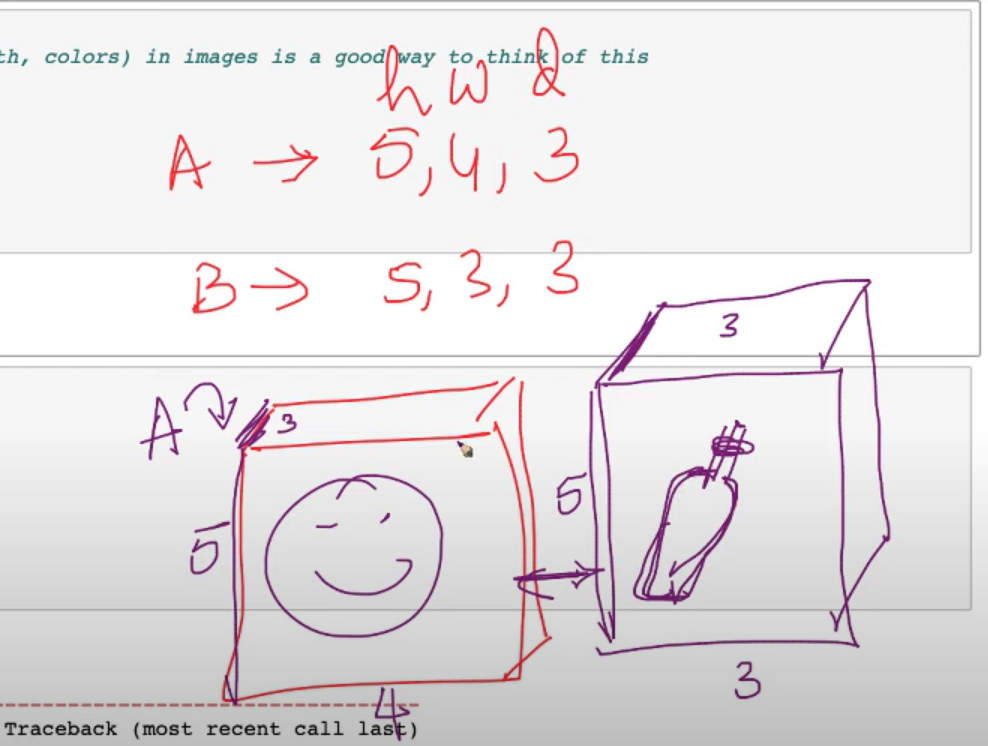 th, colors) in images is a good way to think of this
h w d
A → 5, 4, 3
B → 5, 3, 3
3
A
3
5
5
4
3
Traceback (most recent call last)